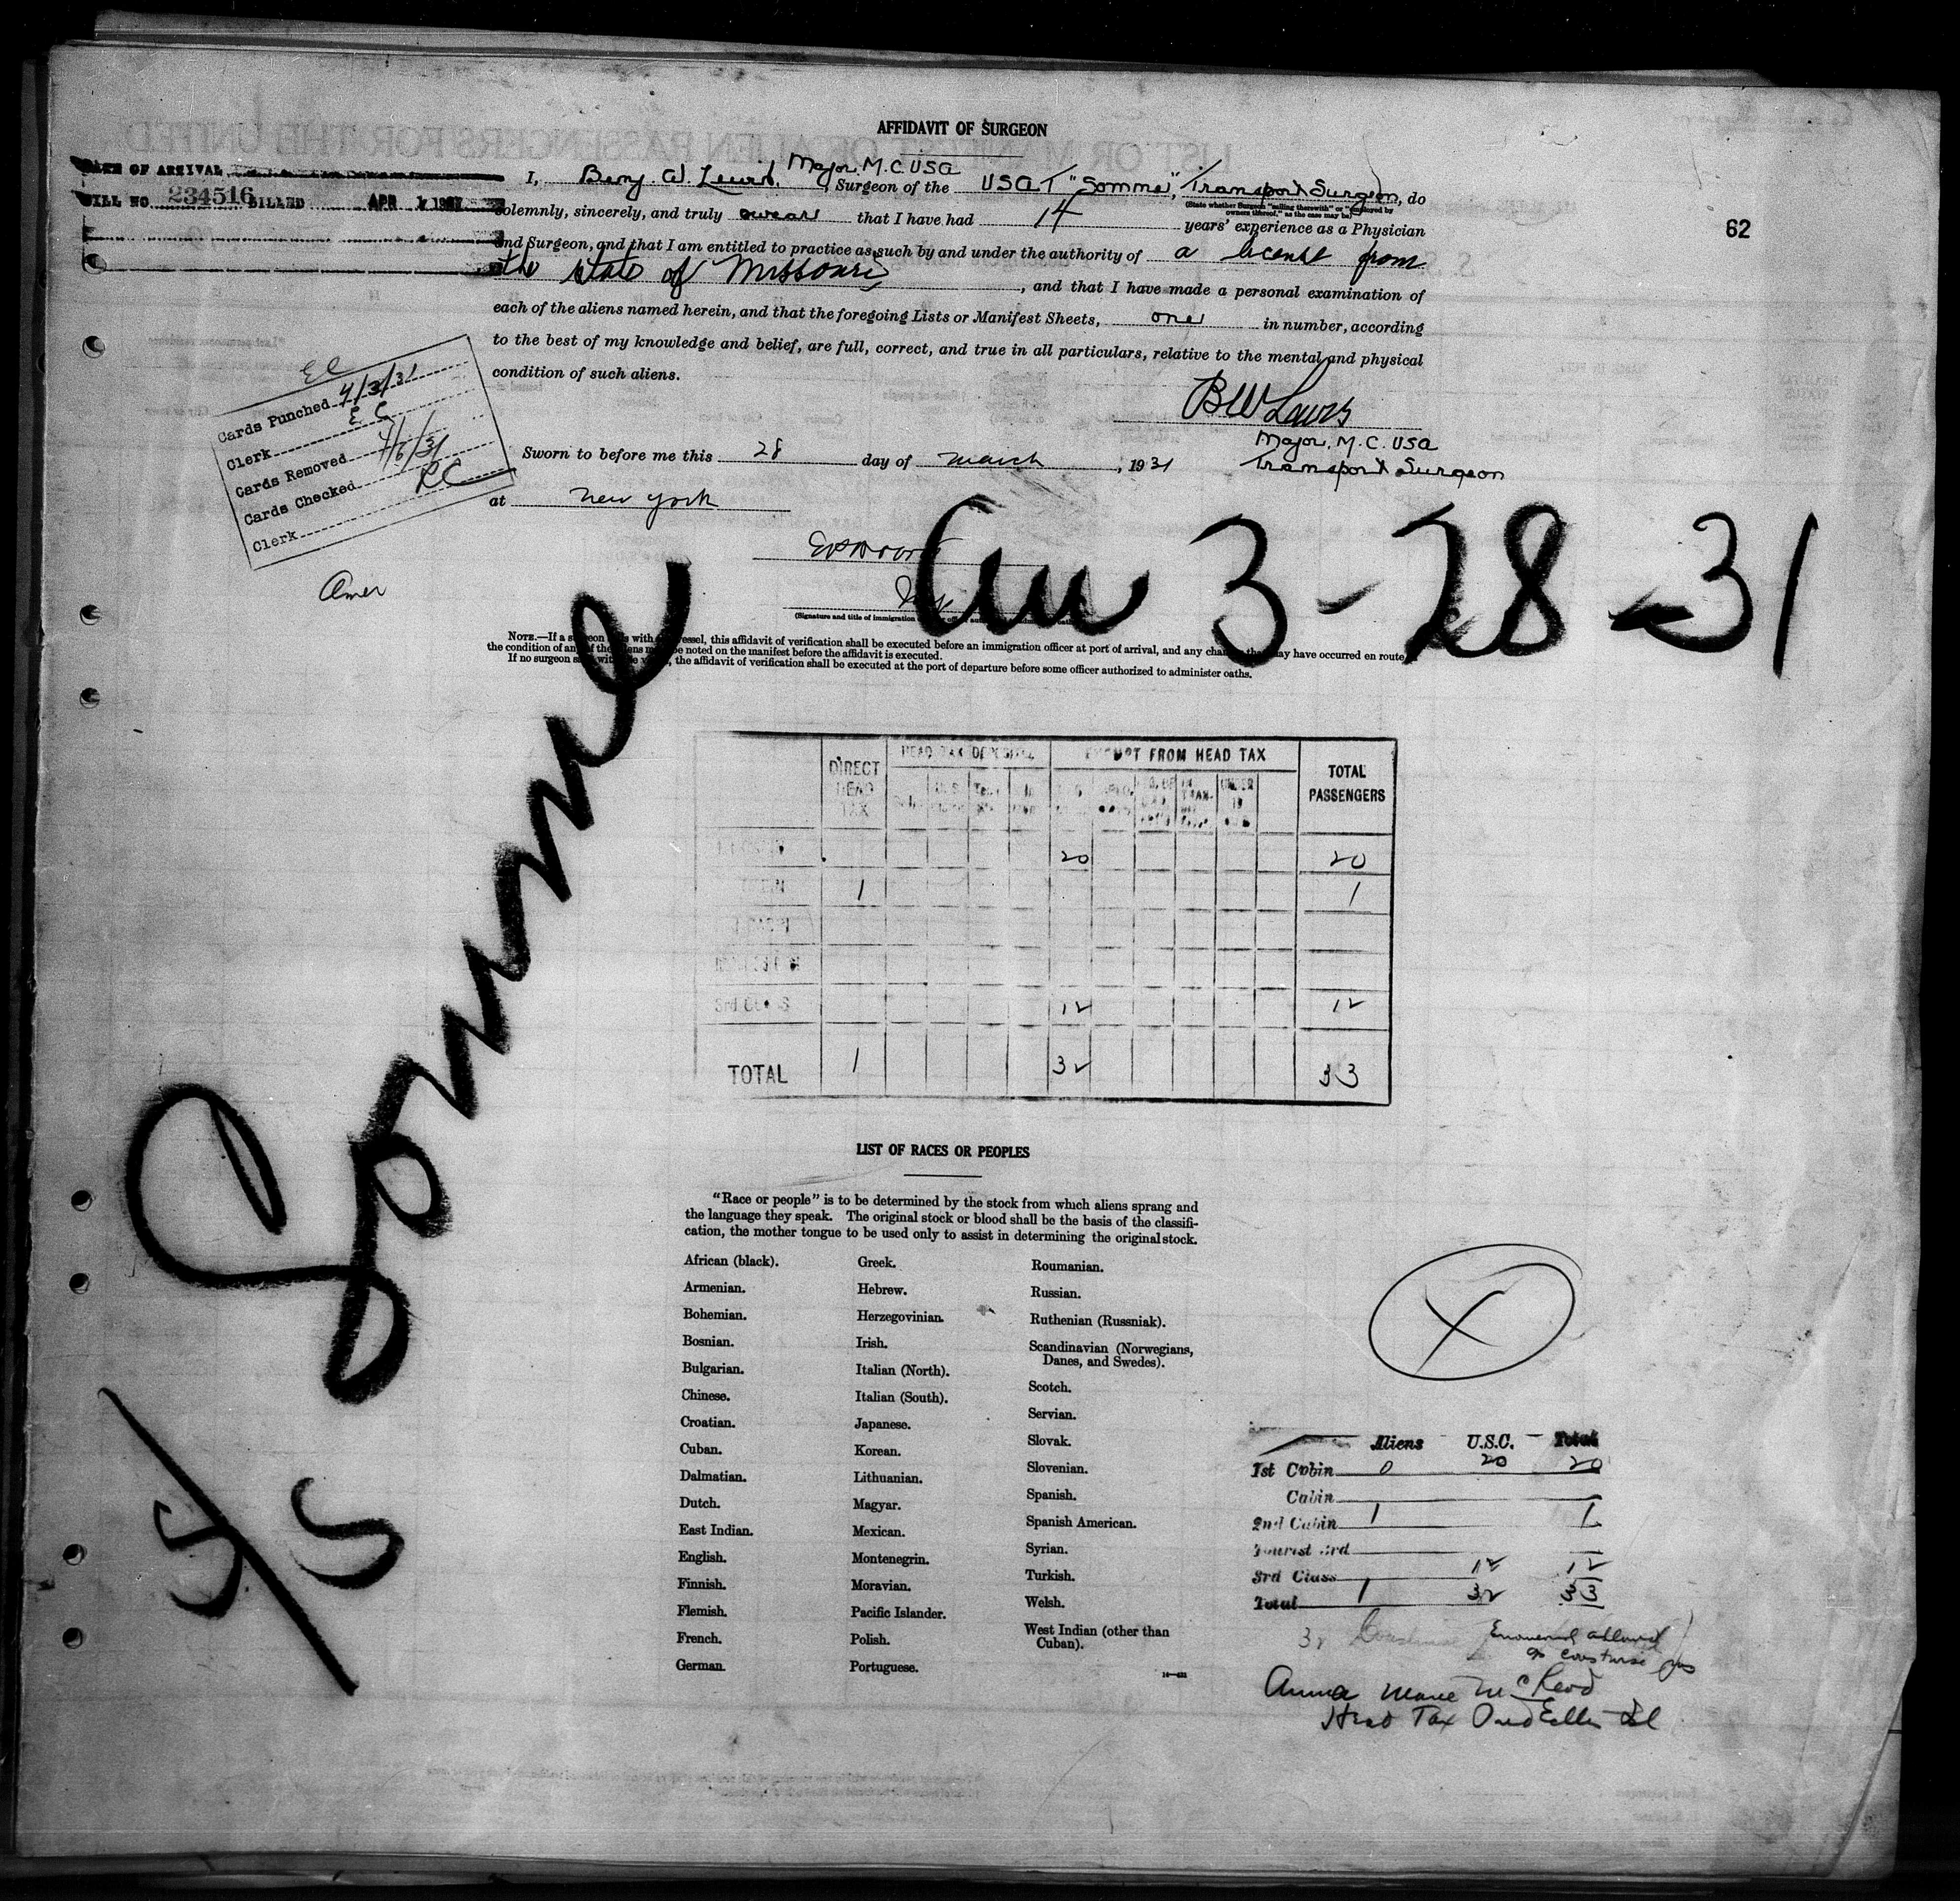 AFFIDAVIT OF SURGEON
DATE OF ARRIVAL
BILL NO 234516 BILLED APR
I, Benj. W. Lewis, Major, M.C. USA, Surgeon of the USAT "Somme", Transport Surgeon, do
(State whether Surgeon "sailing therewith" or "employed by
owners thereof," as the case may be)
solemnly, sincerely, and truly swear that I have had 14 years' experience as a Physician
and Surgeon, and that I am entitled to practice as such by and under the authority of a license from
the State of Missouri, and that I have made a personal examination of
each of the aliens named herein, and that the foregoing Lists or Manifest Sheets, one in number, according
to the best of my knowledge and belief, are full, correct, and true in all particulars, relative to the mental and physical
condition of such aliens.
62
BW Lewis
Major, M.C. USA
Transport Surgeon
EC
Cards Punched 4/3/31
Clerk EC
Cards Removed 4/6/31
Cards Checked RC
Clerk
Amer
Sworn to before me this 28 day of March, 1931
at New York
3-28-31
(Signature and title of immigration
NOTE.—If a surgeon sails with the vessel, this affidavit of verification shall be executed before an immigration officer at port of arrival, and any change that may have occurred en route
the condition of any of the aliens must be noted on the manifest before the affidavit is executed.
If no surgeon sails with the vessel, the affidavit of verification shall be executed at the port of departure before some officer authorized to administer oaths.
S/S Somme
DIRECT HEAD TAX
HEAD TAX DEPOSITED
EXEMPT FROM HEAD TAX
TOTAL PASSENGERS
20 20
1 1
3rd CLASS 12 12
TOTAL 1 32 33
LIST OF RACES OR PEOPLES
"Race or people" is to be determined by the stock from which aliens sprang and
the language they speak. The original stock or blood shall be the basis of the classifi-
cation, the mother tongue to be used only to assist in determining the original stock.
African (black).
Armenian.
Bohemian.
Bosnian.
Bulgarian.
Chinese.
Croatian.
Cuban.
Dalmatian.
Dutch.
East Indian.
English.
Finnish.
Flemish.
French.
German.
Greek.
Hebrew.
Herzegovinian.
Irish.
Italian (North).
Italian (South).
Japanese.
Korean.
Lithuanian.
Magyar.
Mexican.
Montenegrin.
Moravian.
Pacific Islander.
Polish.
Portuguese.
Roumanian.
Russian.
Ruthenian (Russniak).
Scandinavian (Norwegians,
Danes, and Swedes).
Scotch.
Servian.
Slovak.
Slovenian.
Spanish.
Spanish American.
Syrian.
Turkish.
Welsh.
West Indian (other than
Cuban).
X
Aliens U.S.C. Total
1st Cabin 0 20 20
Cabin
2nd Cabin 1 1
Tourist 3rd
3rd Class 12 12
Total 1 32 33
allowed
Anna Marie McLeod
Head Tax